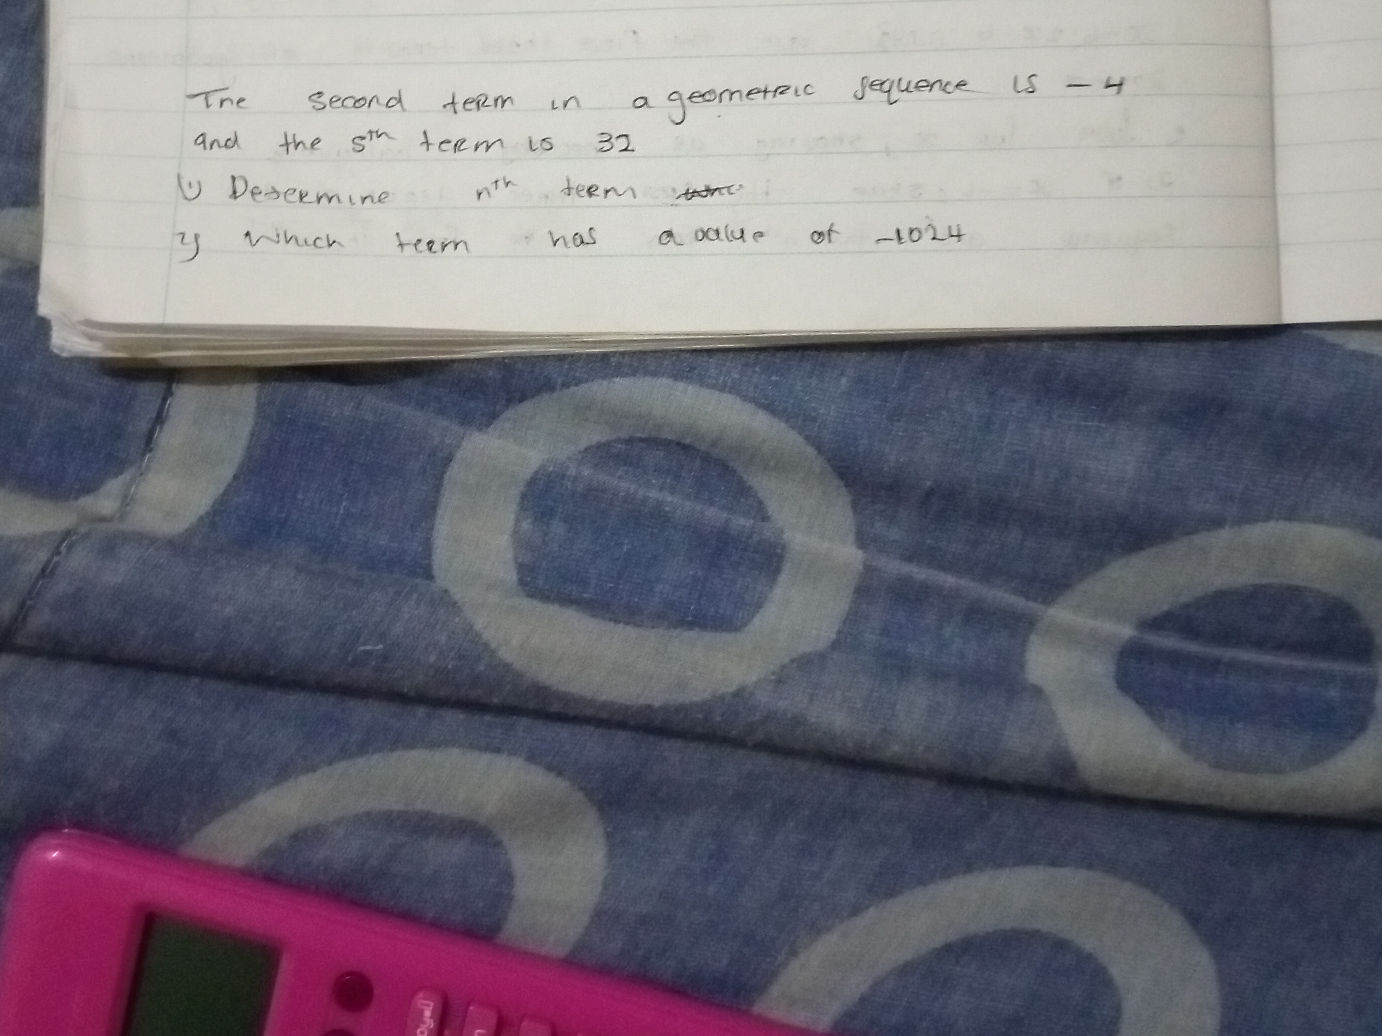 The second term in a geometric sequence is - 4
and the 5th term is 32
1) Determine nth term
2) Which term has a value of -1024